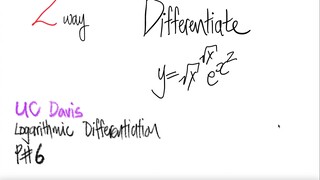 2 way
Differentiate
y=√x^√x e^x²
UC Davis
Logarithmic Differentiation
P#6